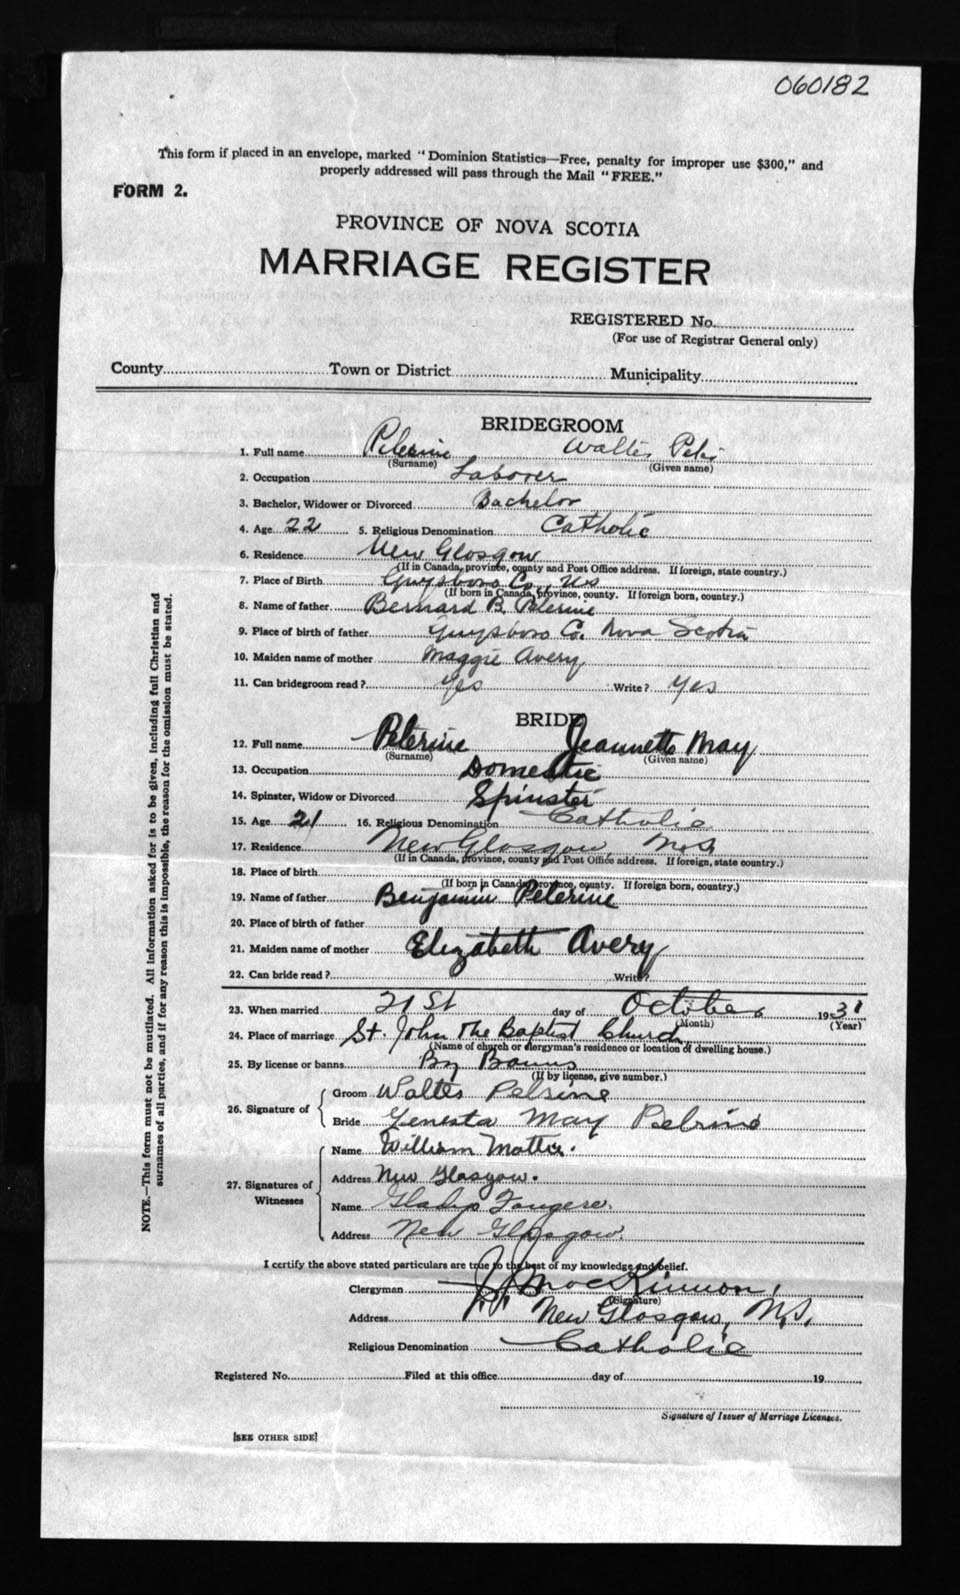 060182
This form if placed in an envelope, marked "Dominion Statistics—Free, penalty for improper use $300," and
properly addressed will pass through the Mail "FREE."
FORM 2.
PROVINCE OF NOVA SCOTIA
MARRIAGE REGISTER
REGISTERED No.
(For use of Registrar General only)
County Town or District Municipality
BRIDEGROOM
1. Full name Pelerine Walter Peter
(Surname) (Given name)
2. Occupation Laborer
3. Bachelor, Widower or Divorced Bachelor
4. Age 22 5. Religious Denomination Catholic
6. Residence New Glasgow
(If in Canada, province, county and Post Office address. If foreign, state country.)
7. Place of Birth Guysboro Co., NS
(If born in Canada, province, county. If foreign born, country.)
8. Name of father Bernard B. Pelerine
9. Place of birth of father Guysboro Co. Nova Scotia
10. Maiden name of mother Maggie Avery
11. Can bridegroom read? Yes Write? Yes
BRIDE
12. Full name Pelerine Jeannette May
(Surname) (Given name)
13. Occupation Domestic
14. Spinster, Widow or Divorced Spinster
15. Age 21 16. Religious Denomination Catholic
17. Residence New Glasgow N.S
(If in Canada, province, county and Post Office address. If foreign, state country.)
18. Place of birth
(If born in Canada, province, county. If foreign born, country.)
19. Name of father Benjamin Pelerine
20. Place of birth of father
21. Maiden name of mother Elizabeth Avery
22. Can bride read? Write?
23. When married 21st day of October 1931
(Month) (Year)
24. Place of marriage St. John The Baptist Church
(Name of church or clergyman's residence or location of dwelling house.)
25. By license or banns By Banns
(If by license, give number.)
26. Signature of
Groom Walter Pelrine
Bride Genesta May Pelrine
27. Signatures of Witnesses
Name William Mattie.
Address New Glasgow.
Name Gladys Fougere.
Address New Glasgow.
I certify the above stated particulars are true to the best of my knowledge and belief.
Clergyman MacKinnon
(Signature)
Address New Glasgow, N.S.
Religious Denomination Catholic
Registered No. Filed at this office day of 19
Signature of Issuer of Marriage Licenses.
[SEE OTHER SIDE]
NOTE.—This form must not be mutilated. All information asked for is to be given, including full Christian and
surnames of all parties, and if for any reason this is impossible, the reason for the omission must be stated.